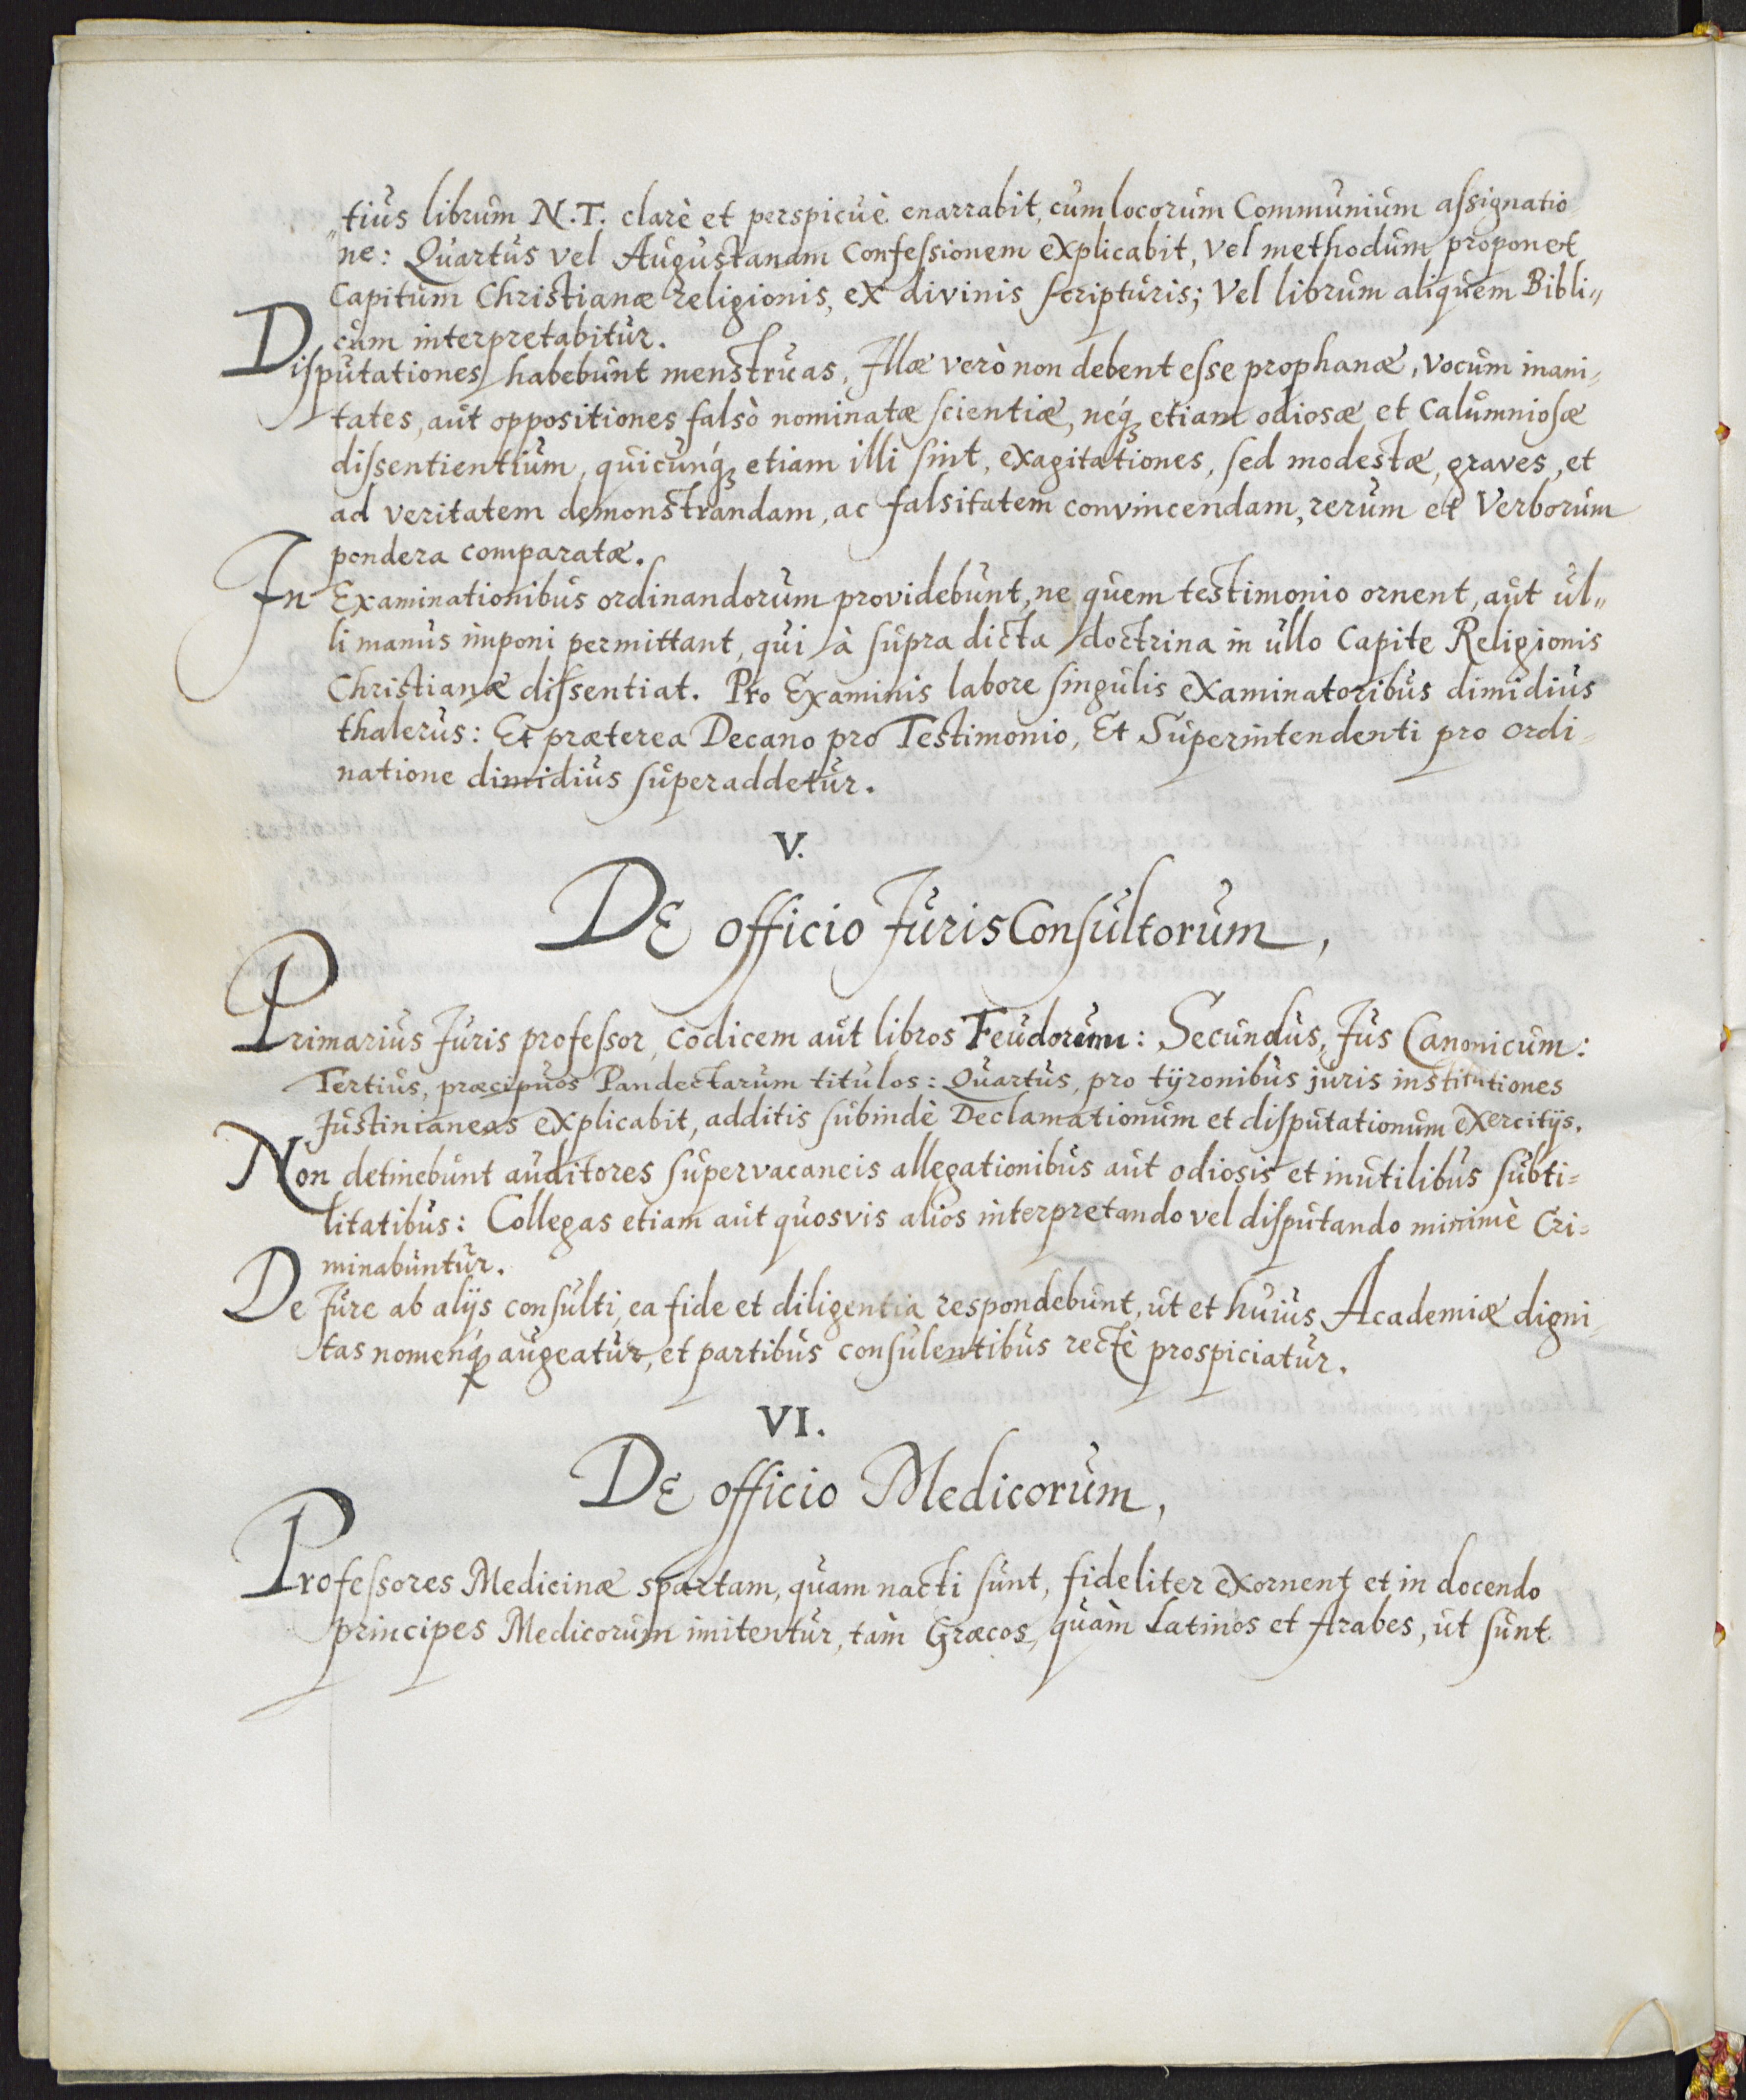 tius librum N.T. clarè et perspicuè enarrabit, cum locorum Communium assignatio
ne: Quartus vel Augustanam Confessionem explicabit, vel methodum proponet
Capitum Christianæ religionis, ex divinis scripturis; Vel librum aliquem Bibli„
cum interpretabitur.
Disputationes habebunt menstruas, Illæ verò non debent esse prophanæ, vocum inani„
tates, aut oppositiones falsò nominatæ scientiæ, neq́ꝫ etiam odiosæ et Calumniosæ
dissentientium, quicunq́ꝫ etiam illi sint, exagitationes, sed modestæ, graves, et
ad veritatem demonstrandam, ac falsitatem convincendam, rerum et Verborum
pondera comparatæ.
In Examinationibus ordinandorum providebunt, ne quem testimonio ornent, aut ul„
li manus imponi permittant, qui à supra dicta doctrina in ullo Capite Religionis
Christianæ dissentiat. Pro Examinis labore singulis examinatoribus dimidius
thalerus: Et præterea Decano pro Testimonio, Et Superintendenti pro ordi„
natione dimidius superaddetur.
V.
DE officio JurisConsultorum,
Primarius Juris professor, codicem aut libros Feudorum: Secundus, Jus Canonicum:
Tertius, præcipuos Pandectarum titulos: Quartus, pro tÿronibus juris institutiones
Justinianeas explicabit, additis subindè Declamationum et disputationum exercitijs.
Non detinebunt auditores supervacaneis allegationibus aut odiosis et inutilibus subti=
litatibus: Collegas etiam aut quosvis alios interpretando vel disputando minimè Cri=
minabuntur.
De Jure ab alijs consulti, ea fide et diligentia respondebunt, ut et huius Academiæ digni„
tas nomenq́ꝫ augeatur, et partibus consulentibus rectè prospiciatur.
VI.
DE officio Medicorum,
Professores Medicinæ spartam, quam nacti sunt, fideliter exornent et in docendo
principes Medicorum imitentur, tàm Græcos, quàm Latinos et Arabes, ut sunt